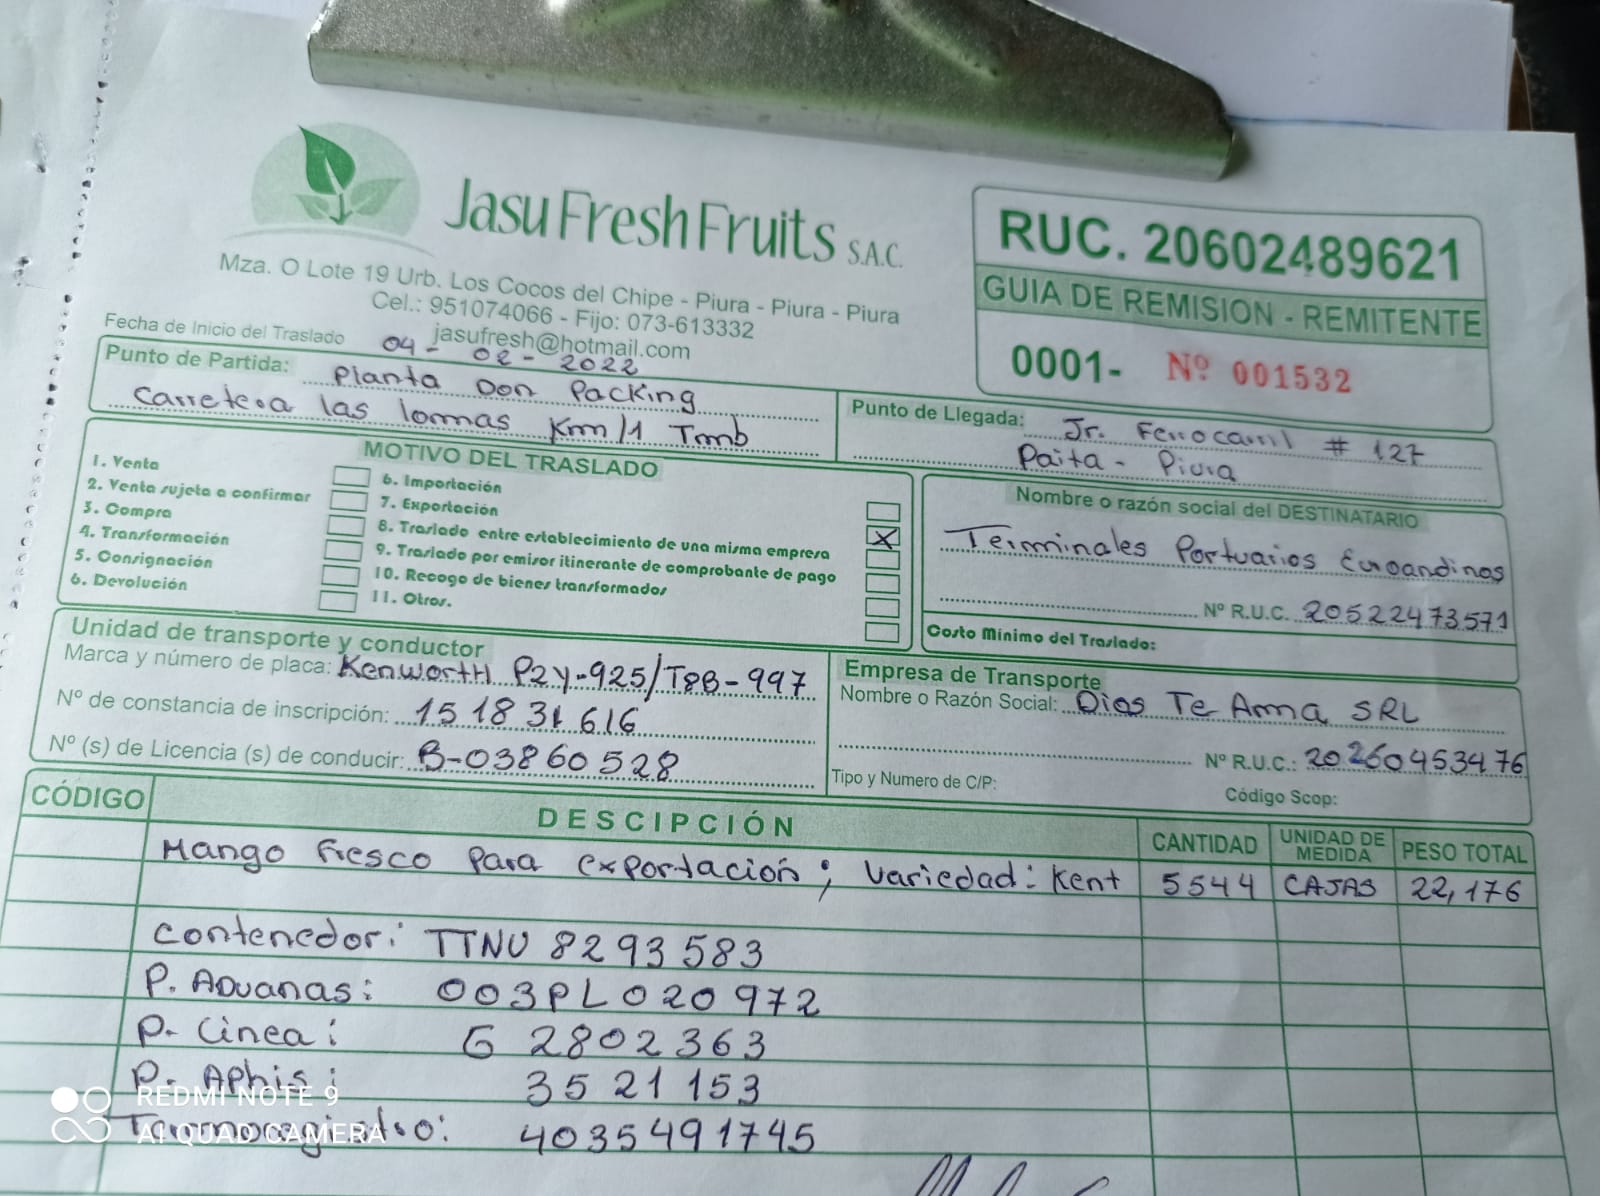 Jasu Fresh Fruits S.A.C.
Mza. O Lote 19 Urb. Los Cocos del Chipe - Piura - Piura - Piura
Cel.: 951074066 - Fijo: 073-613332
jasufresh@hotmail.com
RUC. 20602489621
GUIA DE REMISION - REMITENTE
0001- Nº 001532
Fecha de Inicio del Traslado 04- 02- 2022
Punto de Partida: Planta Don Packing
Carretera las lomas Km/1 Tmb
Punto de Llegada: Jr. Ferrocarril # 127
Paita - Piura
MOTIVO DEL TRASLADO
1. Venta
2. Venta sujeta a confirmar
3. Compra
4. Transformación
5. Consignación
6. Devolución
6. Importación
7. Exportación
8. Traslado entre establecimiento de una misma empresa X
9. Traslado por emisor itinerante de comprobante de pago
10. Recogo de bienes transformados
11. Otros.
Nombre o razón social del DESTINATARIO
Terminales Portuarios Euroandinos
Nº R.U.C. 20522473571
Costo Mínimo del Traslado:
Unidad de transporte y conductor
Marca y número de placa: Kenworth P2Y-925/T8B-997
Nº de constancia de inscripción: 151831616
Nº (s) de Licencia (s) de conducir: B-03860528
Empresa de Transporte
Nombre o Razón Social: Dios Te Ama SRL
Nº R.U.C.: 20260453476
Tipo y Numero de C/P:
Código Scop:
CÓDIGO DESCIPCIÓN CANTIDAD UNIDAD DE MEDIDA PESO TOTAL
Mango fresco para exportación; variedad: Kent 5544 CAJAS 22,176
Contenedor: TTNU 8293583
P. Aduanas: 003PL020972
P. Linea: G 2802363
P. Aphis: 3521153
Termoregistro: 4035491745
REDMI NOTE 9
AI QUAD CAMERA